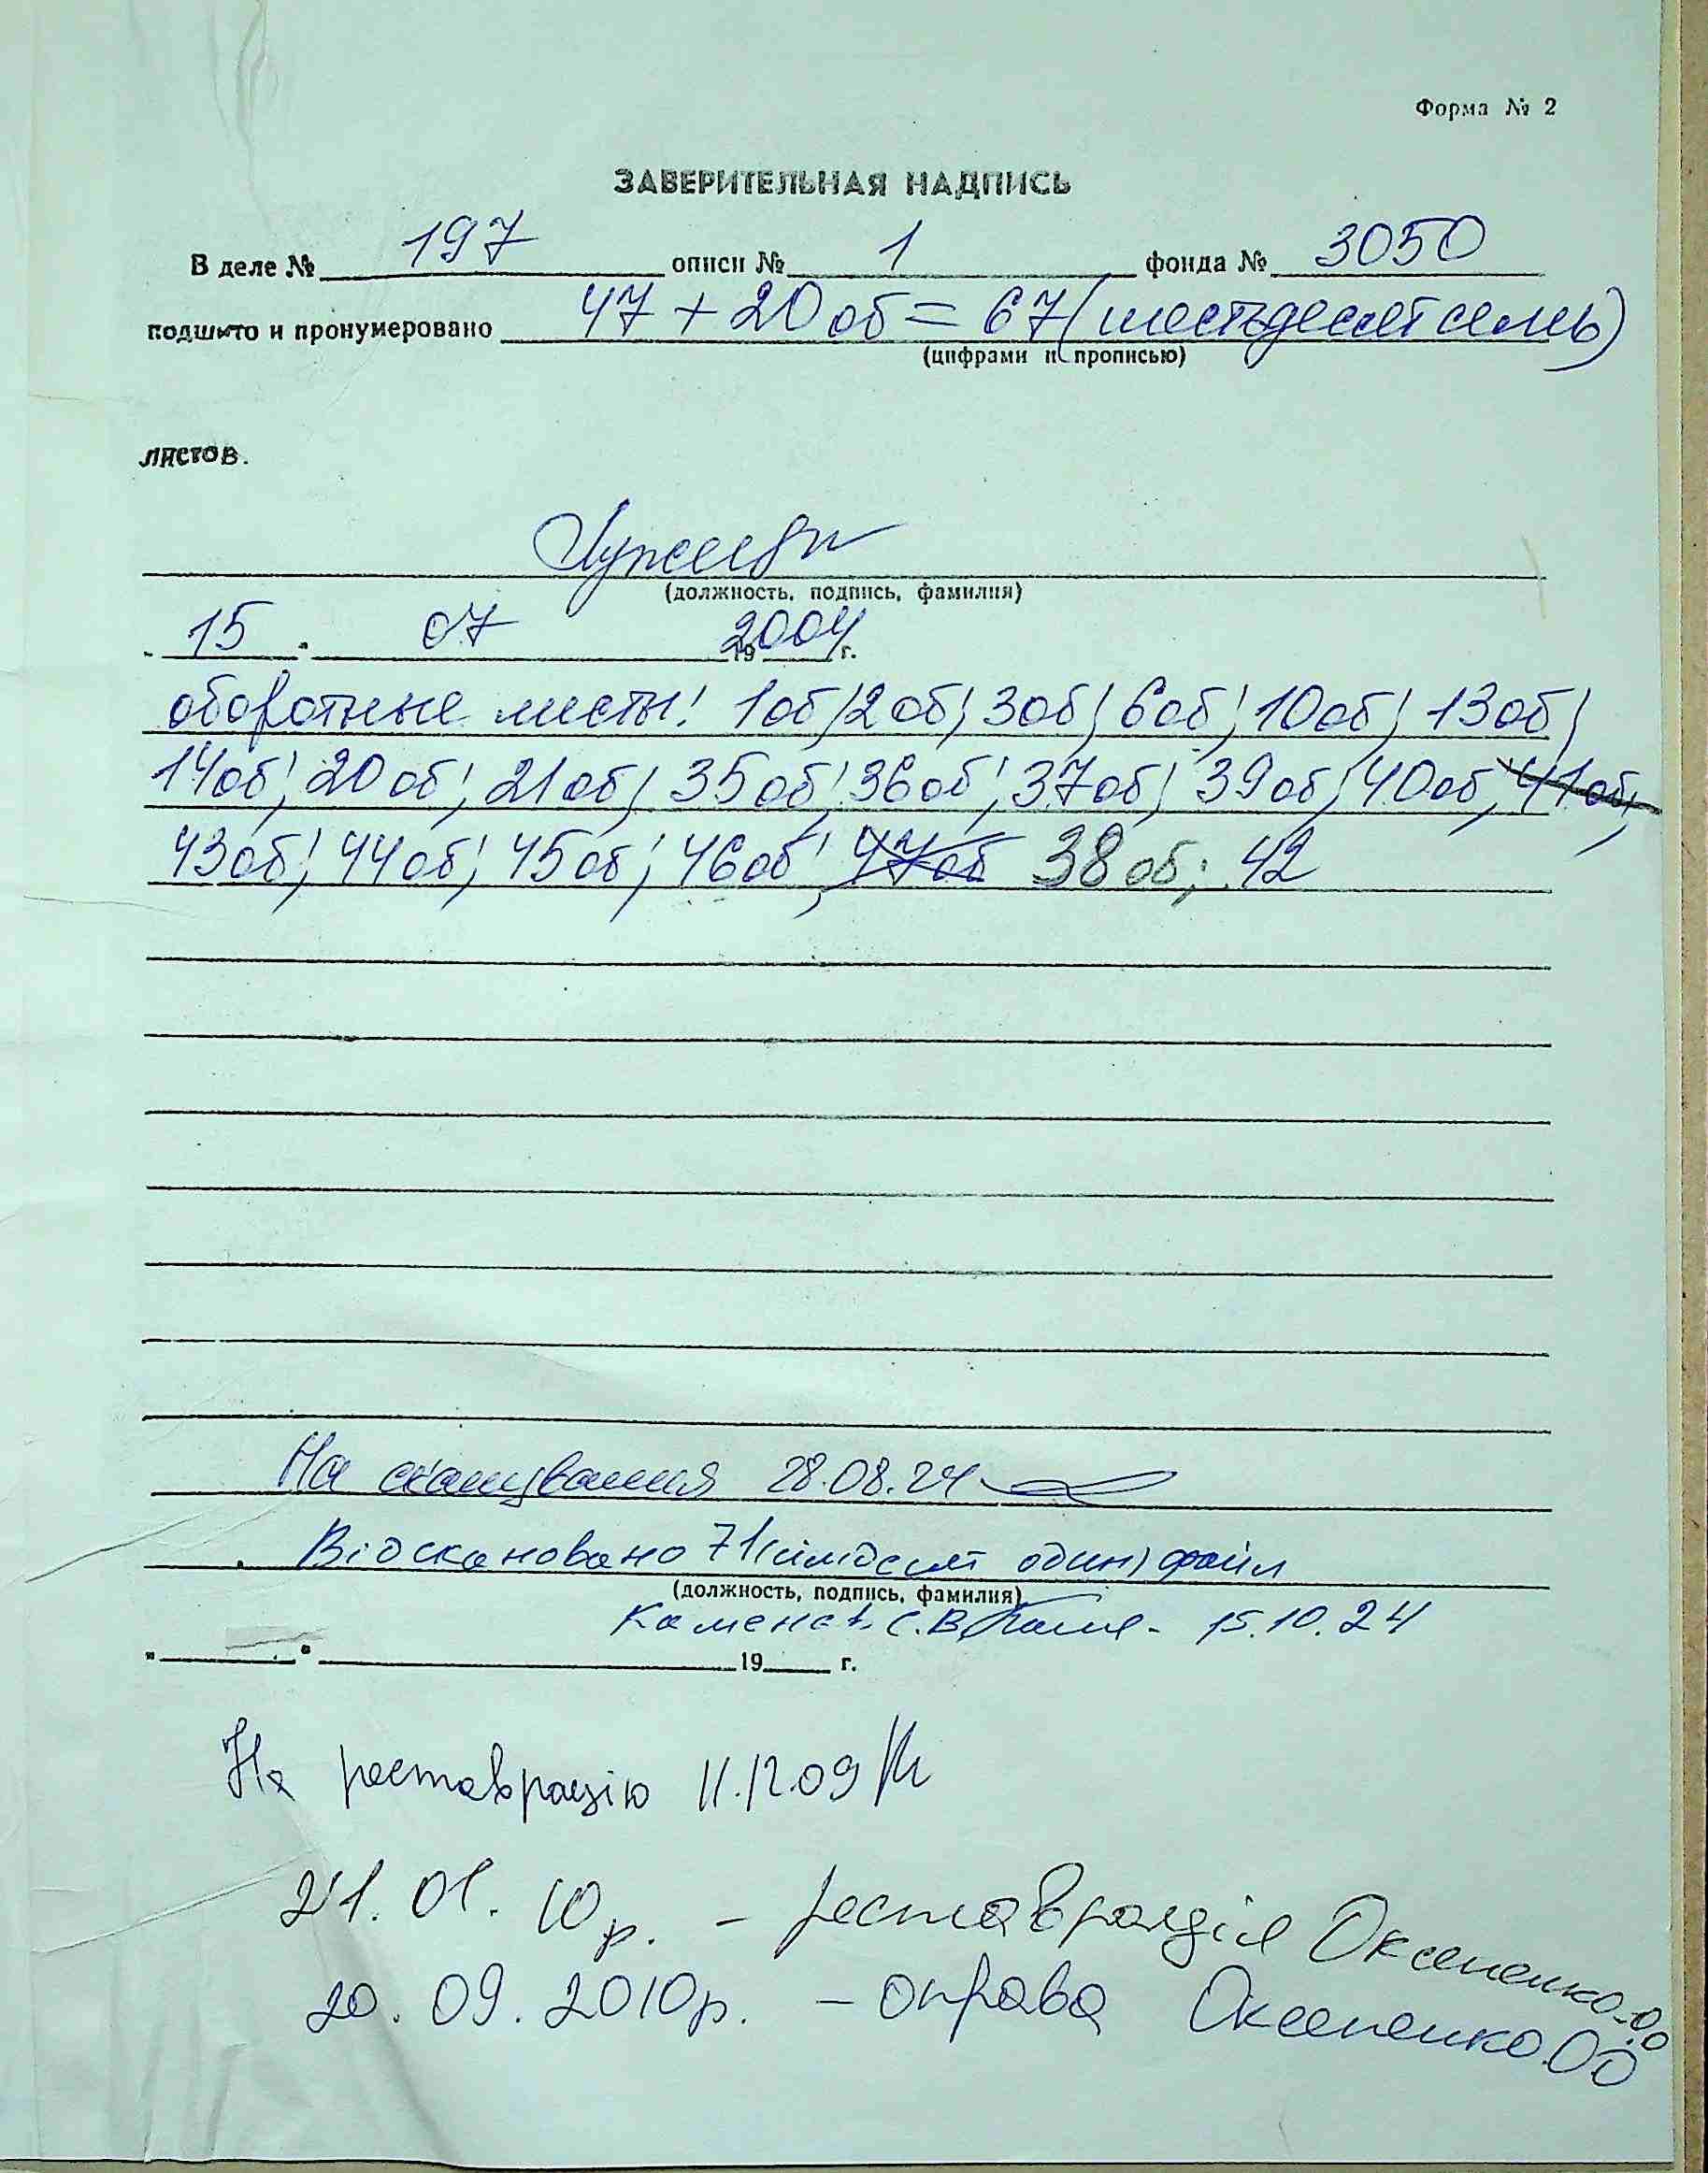 Форма № 2
ЗАВЕРИТЕЛЬНАЯ НАДПИСЬ
В деле № 197 описи № 1 фонда № 3050
подшито и пронумеровано 47 + 20 об = 67 (шестьдесят семь)
(цифрами и прописью)
листов.
(должность, подпись, фамилия)
15. 07 2004 г.
оборотные листы: 1об; 2об; 3об; 6об; 10об; 13об;
14об; 20об; 21об; 35об; 36об; 37об; 39об; 40об; 41об;
43об; 44об; 45об; 46об; 47об 38об; 42
На сканування 28.08.24
Відскановано 71 (сімдесят один) файл
(должность, подпись, фамилия)
С.В. 15.10.24
" " 19 г.
На реставрацію 11.12.09
21.01.10р. – реставрація Оксененко О.О
20.09.2010р. – оправа Оксененко О.О